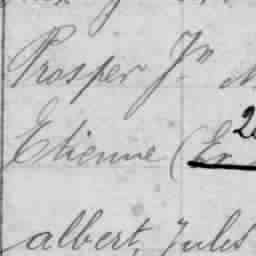 Prosper Jn
Etienne (Er
albert, Jules